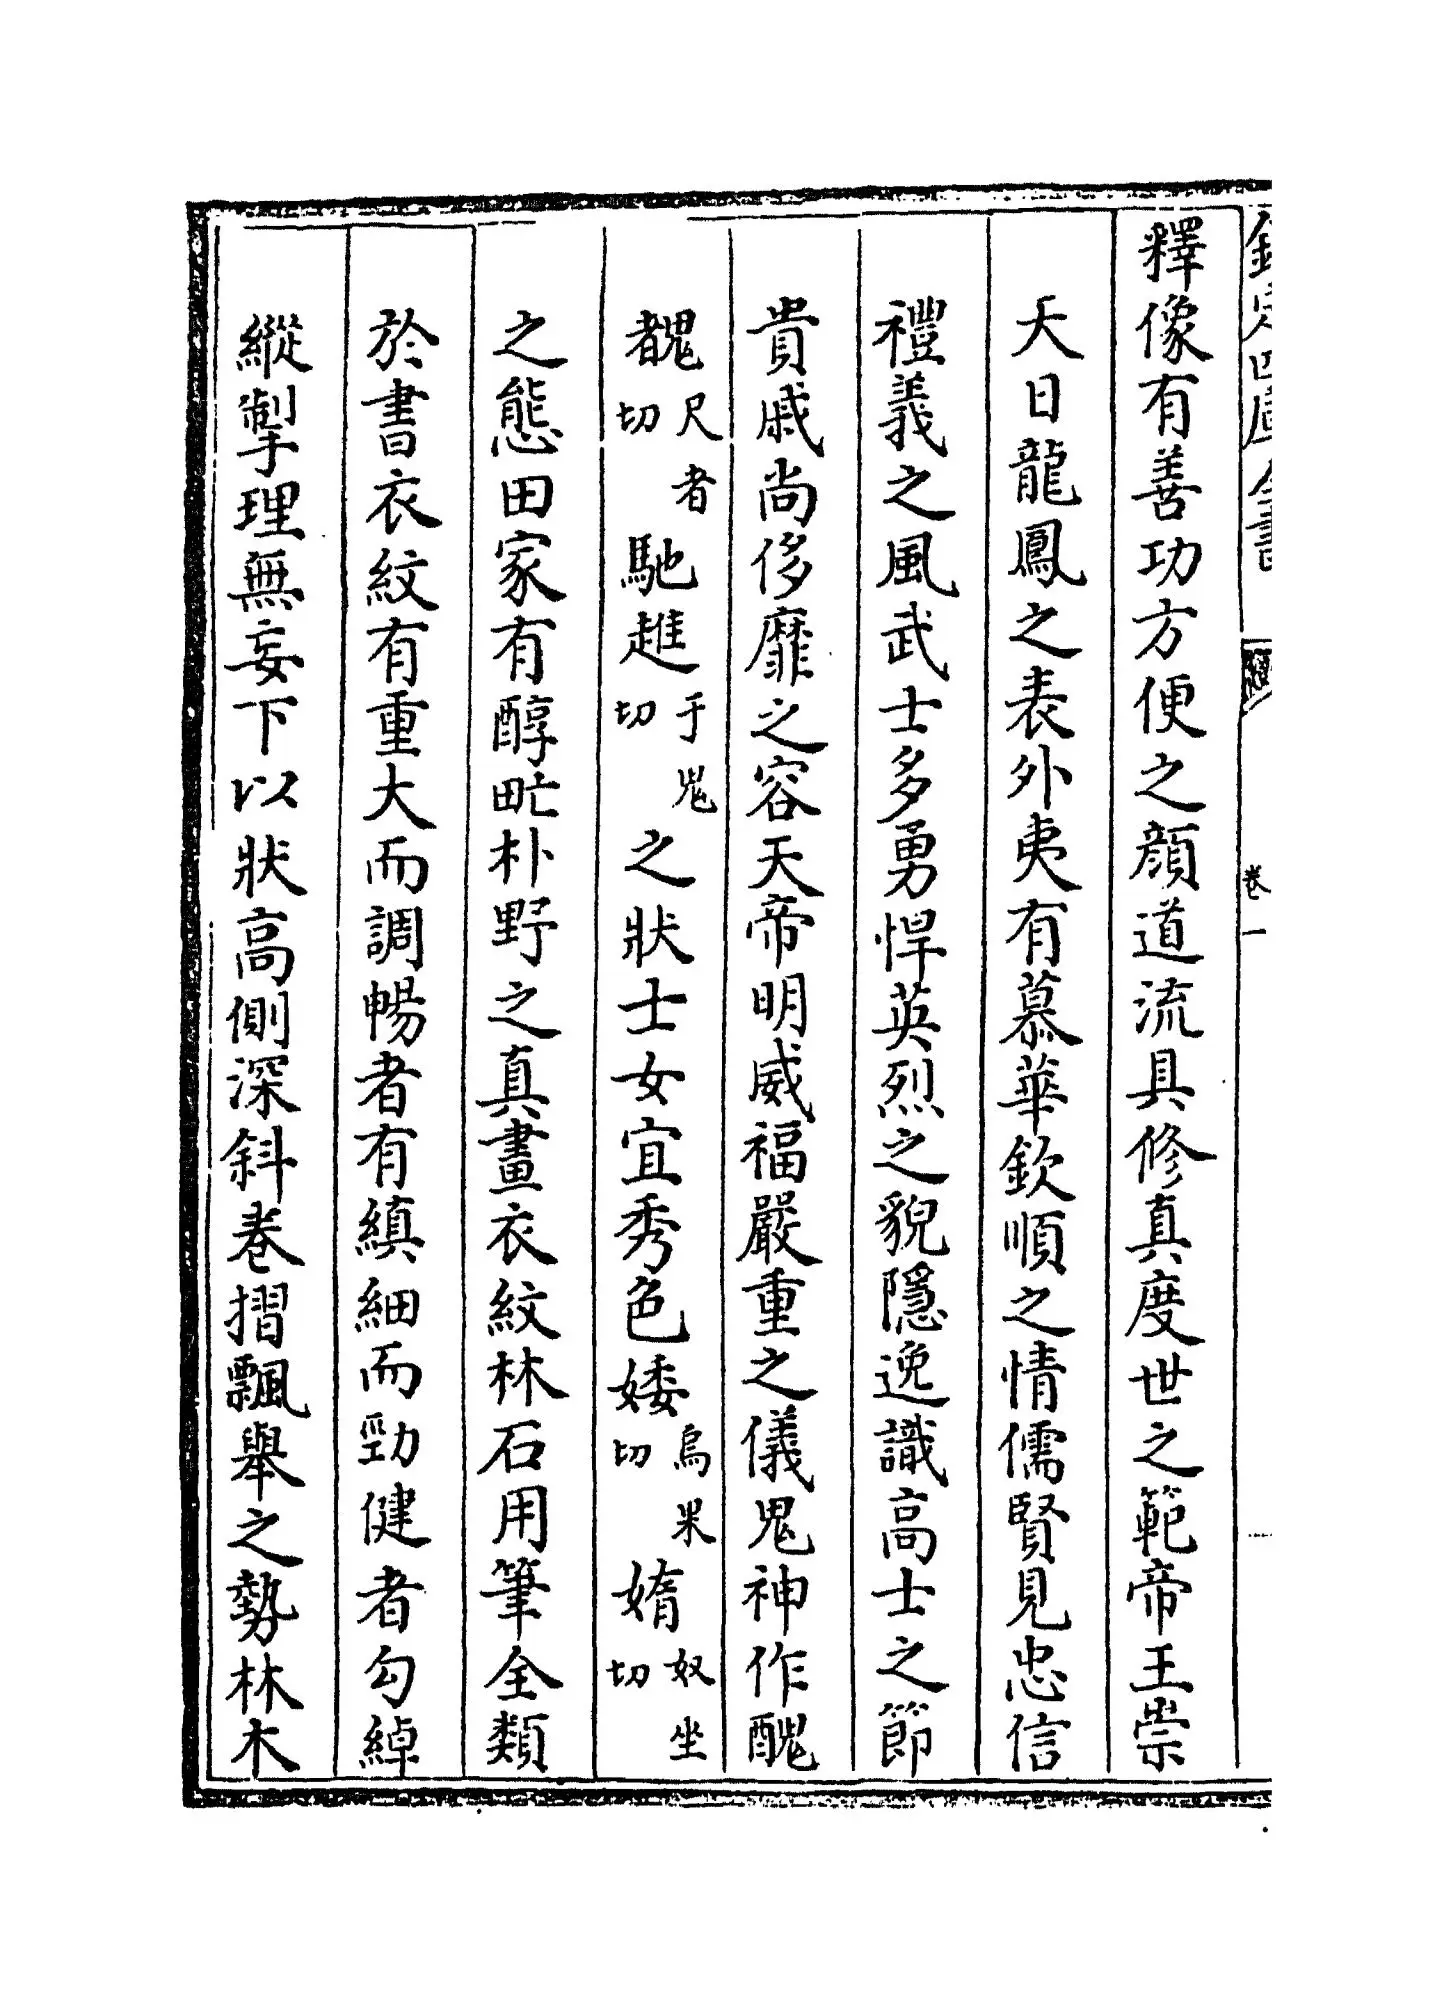 欽定四庫全書 卷一
釋像有善功方便之顔道流具修真度世之範帝王崇
天日龍鳳之表外夷有慕華欽順之情儒賢見忠信
禮義之風武士多勇悍英烈之貌隱逸識高士之節
貴戚尚侈靡之容天帝明威福嚴重之儀鬼神作醜
䰩尺者切馳趡于鬼切之狀士女宜秀色婑烏果切媠奴坐切
之態田家有醇甿朴野之真畫衣紋林石用筆全類
於書衣紋有重大而調暢者有縝細而勁健者勾綽
縱掣理無妄下以狀高側深斜卷摺飄舉之勢林木